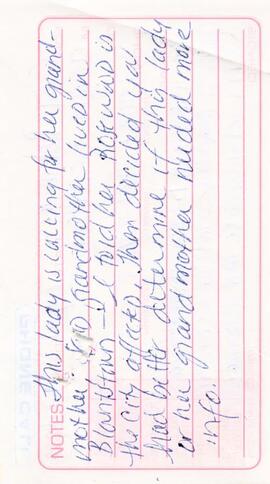 NOTES This lady is calling for her grand-
mother. Grandmother lived in
Blandtown — I told her Rosewood is
the city affected, then decided you
had better determine if this lady
or her grandmother needed more
info.
PHONE CALL